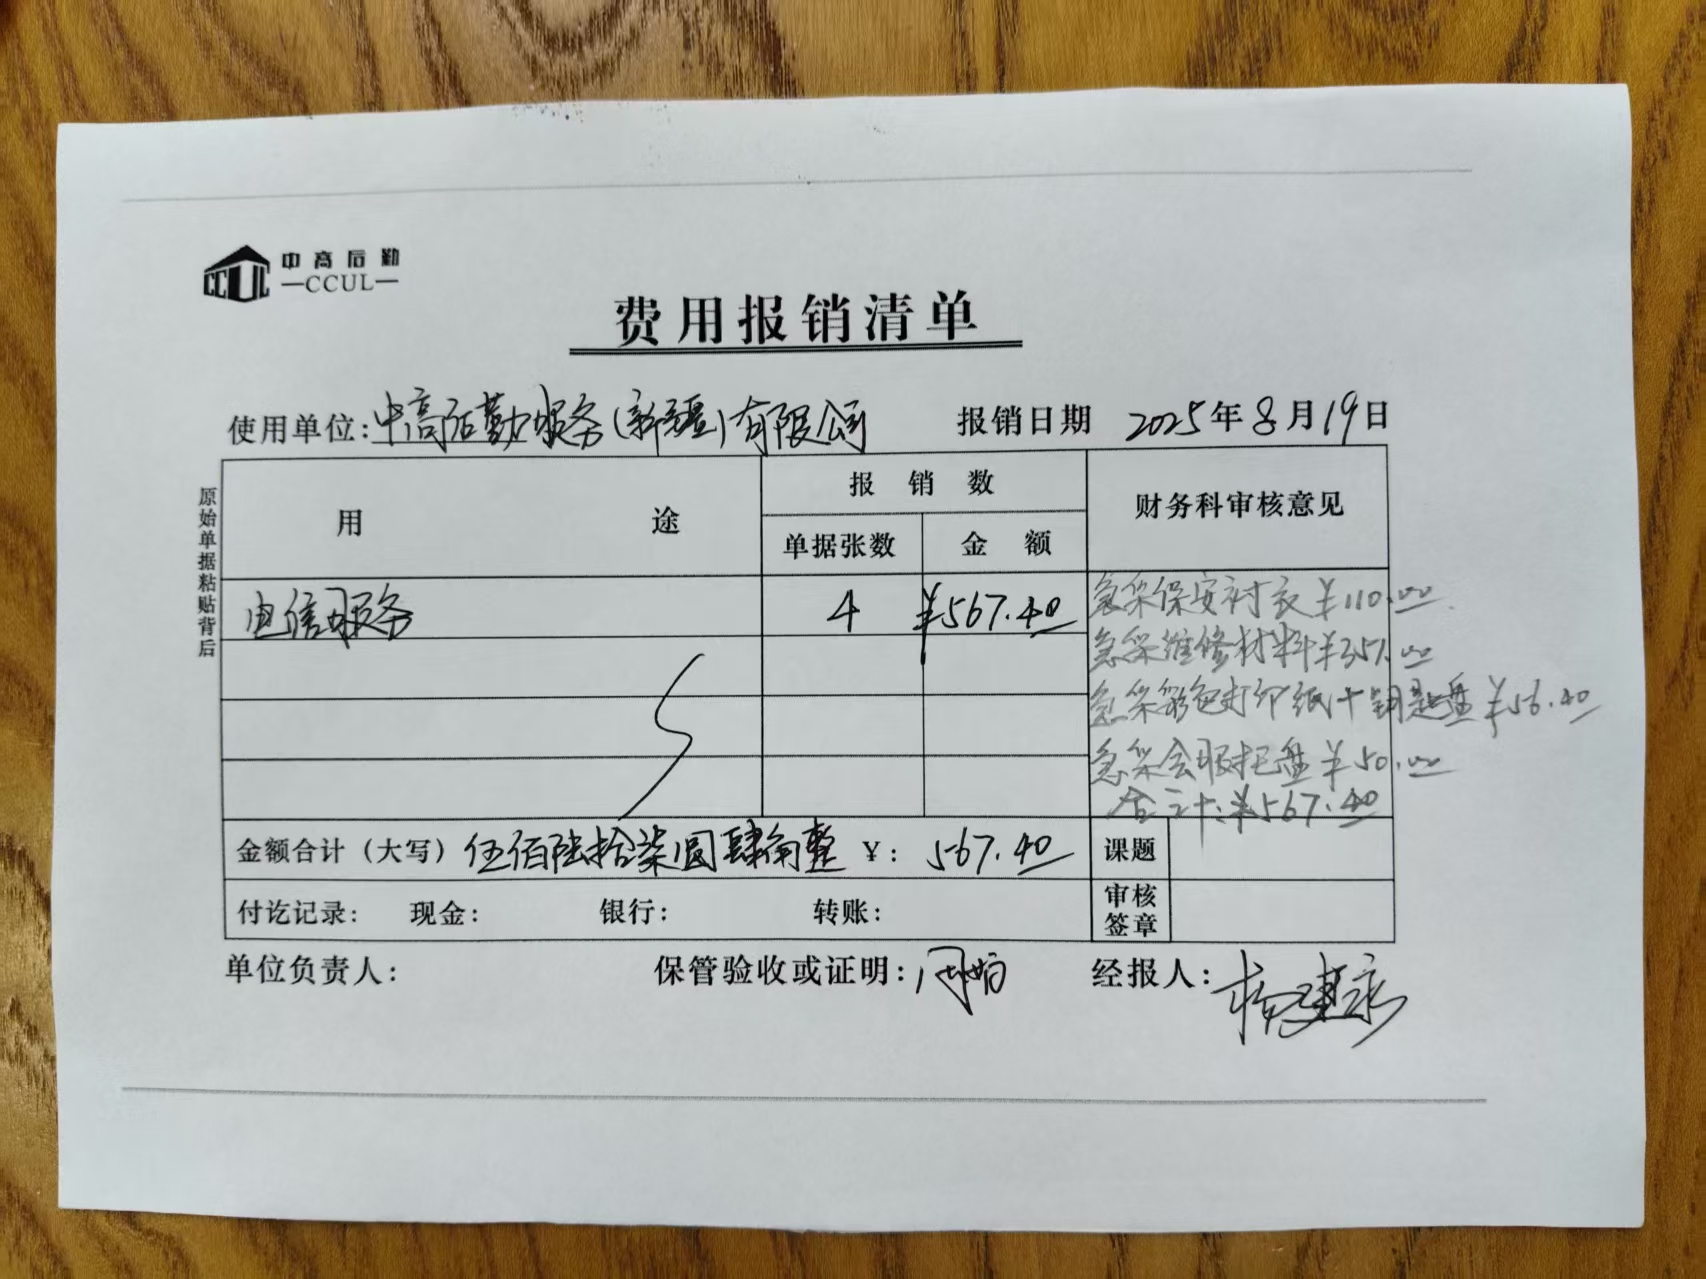 中高后勤
CCUL
—CCUL—
费用报销清单
使用单位:中高后勤服务(新疆)有限公司 报销日期 2025年8月19日
原始单据粘贴背后
用途 报销数 财务科审核意见
单据张数 金额
电信服务 4 ¥567.40
急采保安衬衣¥110.00
急采维修材料¥351.00
急采彩色打印纸+钥匙盘¥56.40
急采会服托盘¥50.00
合计:¥567.40
金额合计(大写)伍佰陆拾柒圆肆角整 ¥: 567.40 课题
付讫记录: 现金: 银行: 转账: 审核签章
单位负责人: 保管验收或证明: 经报人: